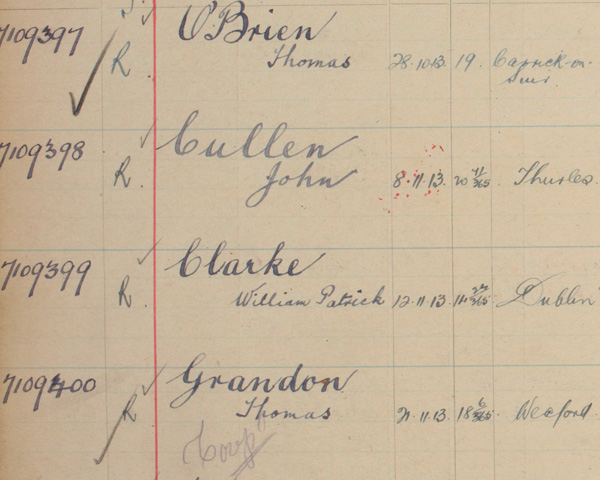 7109397 R. O'Brien
Thomas 28.10.13. 19. Carrick-on-
Suir
7109398 R. Cullen
John 8.11.13. 20 11/365 Thurles.
7109399 R. Clarke
William Patrick 12.11.13. Dublin
7109400 R. Grandon
Thomas 21.11.13. 18 6/365 Wexford.
Corp